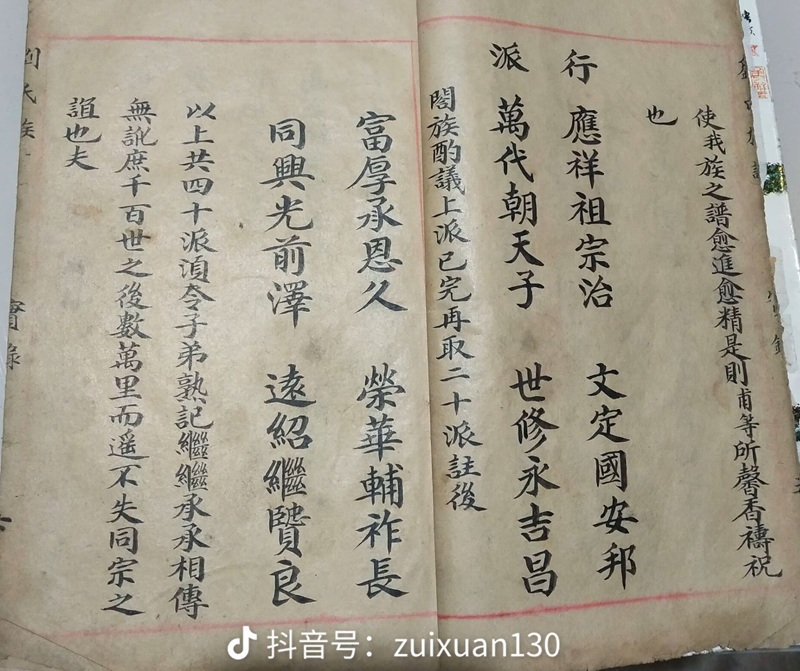 使我族之譜愈進愈精是則甫等所馨香禱祝
也
行 應祥祖宗治 文定國安邦
派 萬代朝天子 世修永吉昌
閤族酌議上派已完再取二十派註後
富厚承恩久 榮華輔祚長
同興光前澤 遠紹繼贒良
以上共四十派湏令子弟熟記繼繼承承相傳
無訛庶千百世之後數萬里而遥不失同宗之
誼也夫
劉氏族
實錄
抖音号：zuixuan130